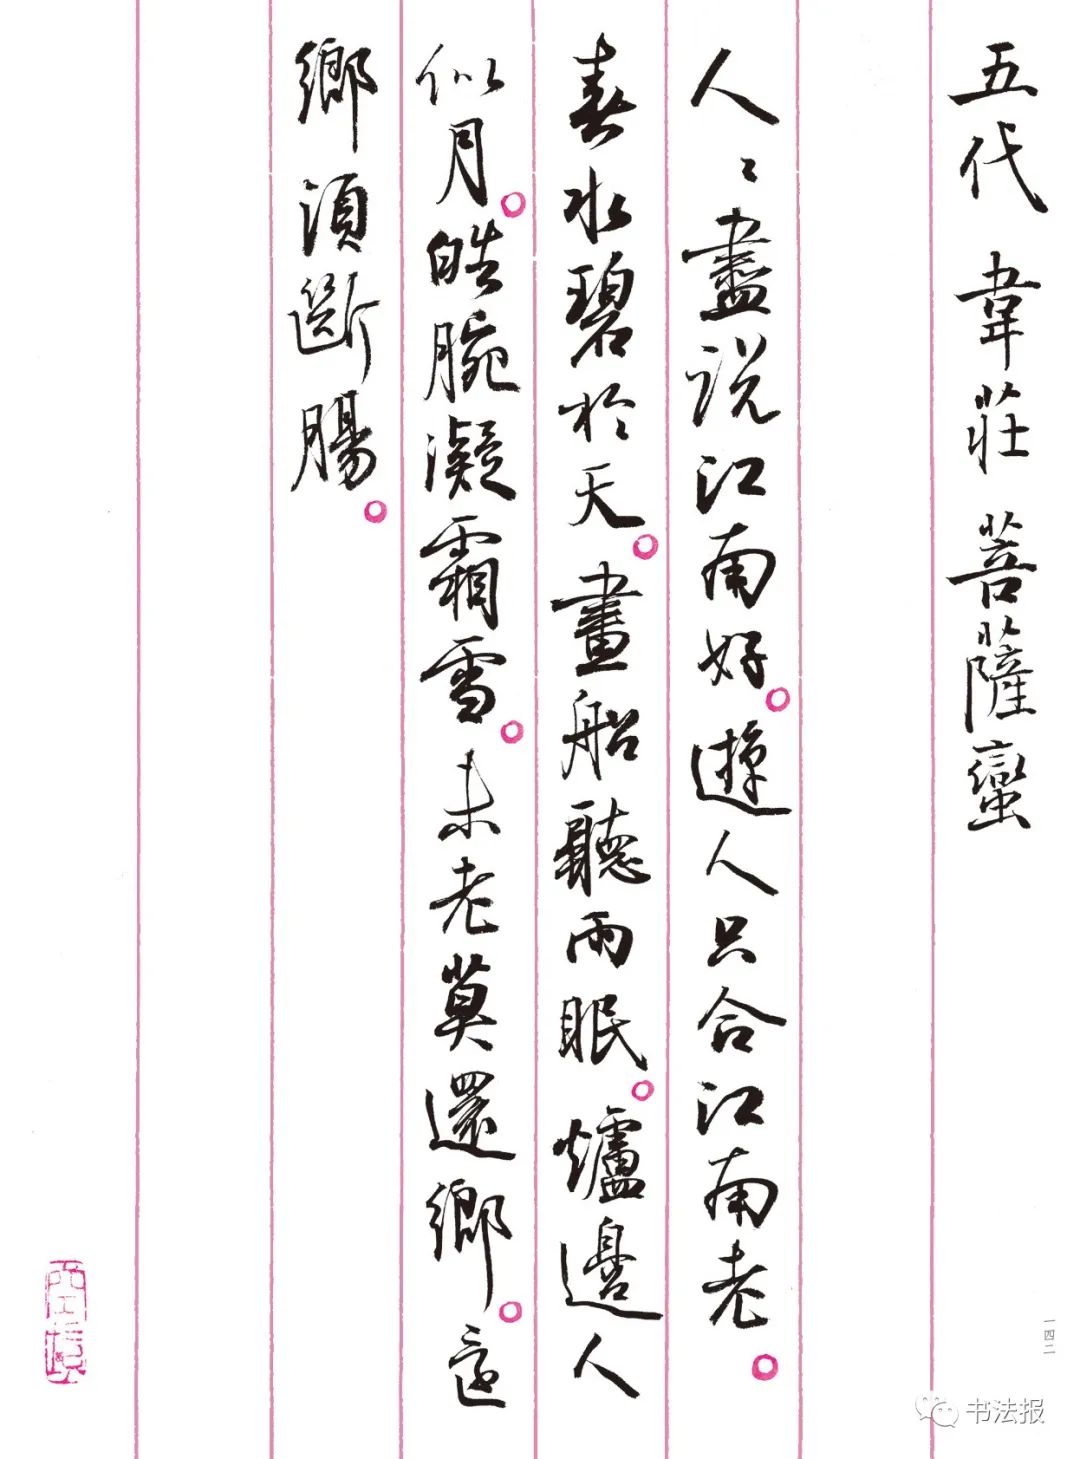 五代 韋莊 菩薩蠻
人〻盡説江南好。遊人只合江南老。
春水碧於天。畫船聽雨眠。爐邊人
似月。皓腕凝霜雪。未老莫還鄉。還
鄉須斷腸。
一四二
书法报